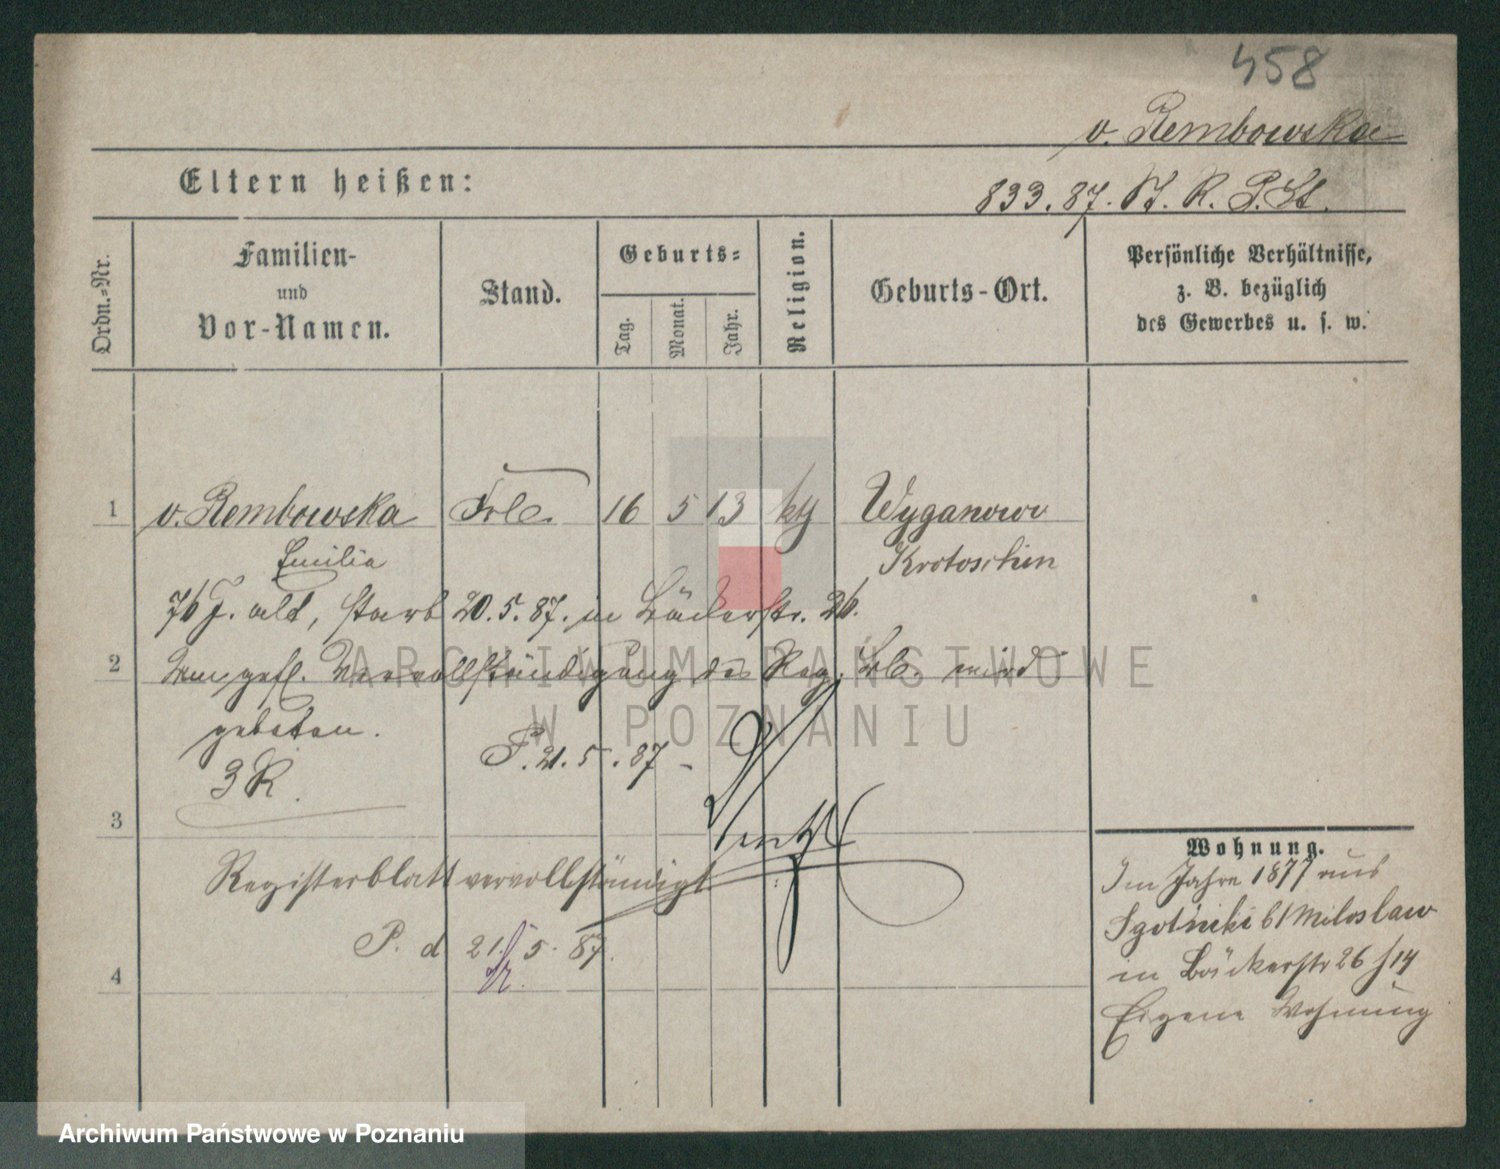 458
v. Rembowska
Eltern heißen:
833. 87. St. R. P. St.
Ordn.-Nr.
Familien-
und
Vor-Namen.
Stand.
Geburts-
Tag.
Monat.
Jahr.
Religion.
Geburts-Ort.
Persönliche Verhältnisse,
z. B. bezüglich
des Gewerbes u. s. w.
1 v. Rembowska Frl. 16 5 13 kth Wyganowo
Emilia Krotoschin
76 J. alt, starb 20. 5. 87. in Bäckerstr. 26.
2 Um gefl. Vervollständigung des Reg. Bl. wird
gebeten.
P. 21. 5. 87
3 R.
3
Registerblatt vervollständigt
P. d 21. 5. 87.
4
Wohnung.
Im Jahre 1877 aus
b/ Miloslaw
in Bäckerstr 26 14
Eigene Wohnung
ARCHIWUM PAŃSTWOWE
W POZNANIU
Archiwum Państwowe w Poznaniu